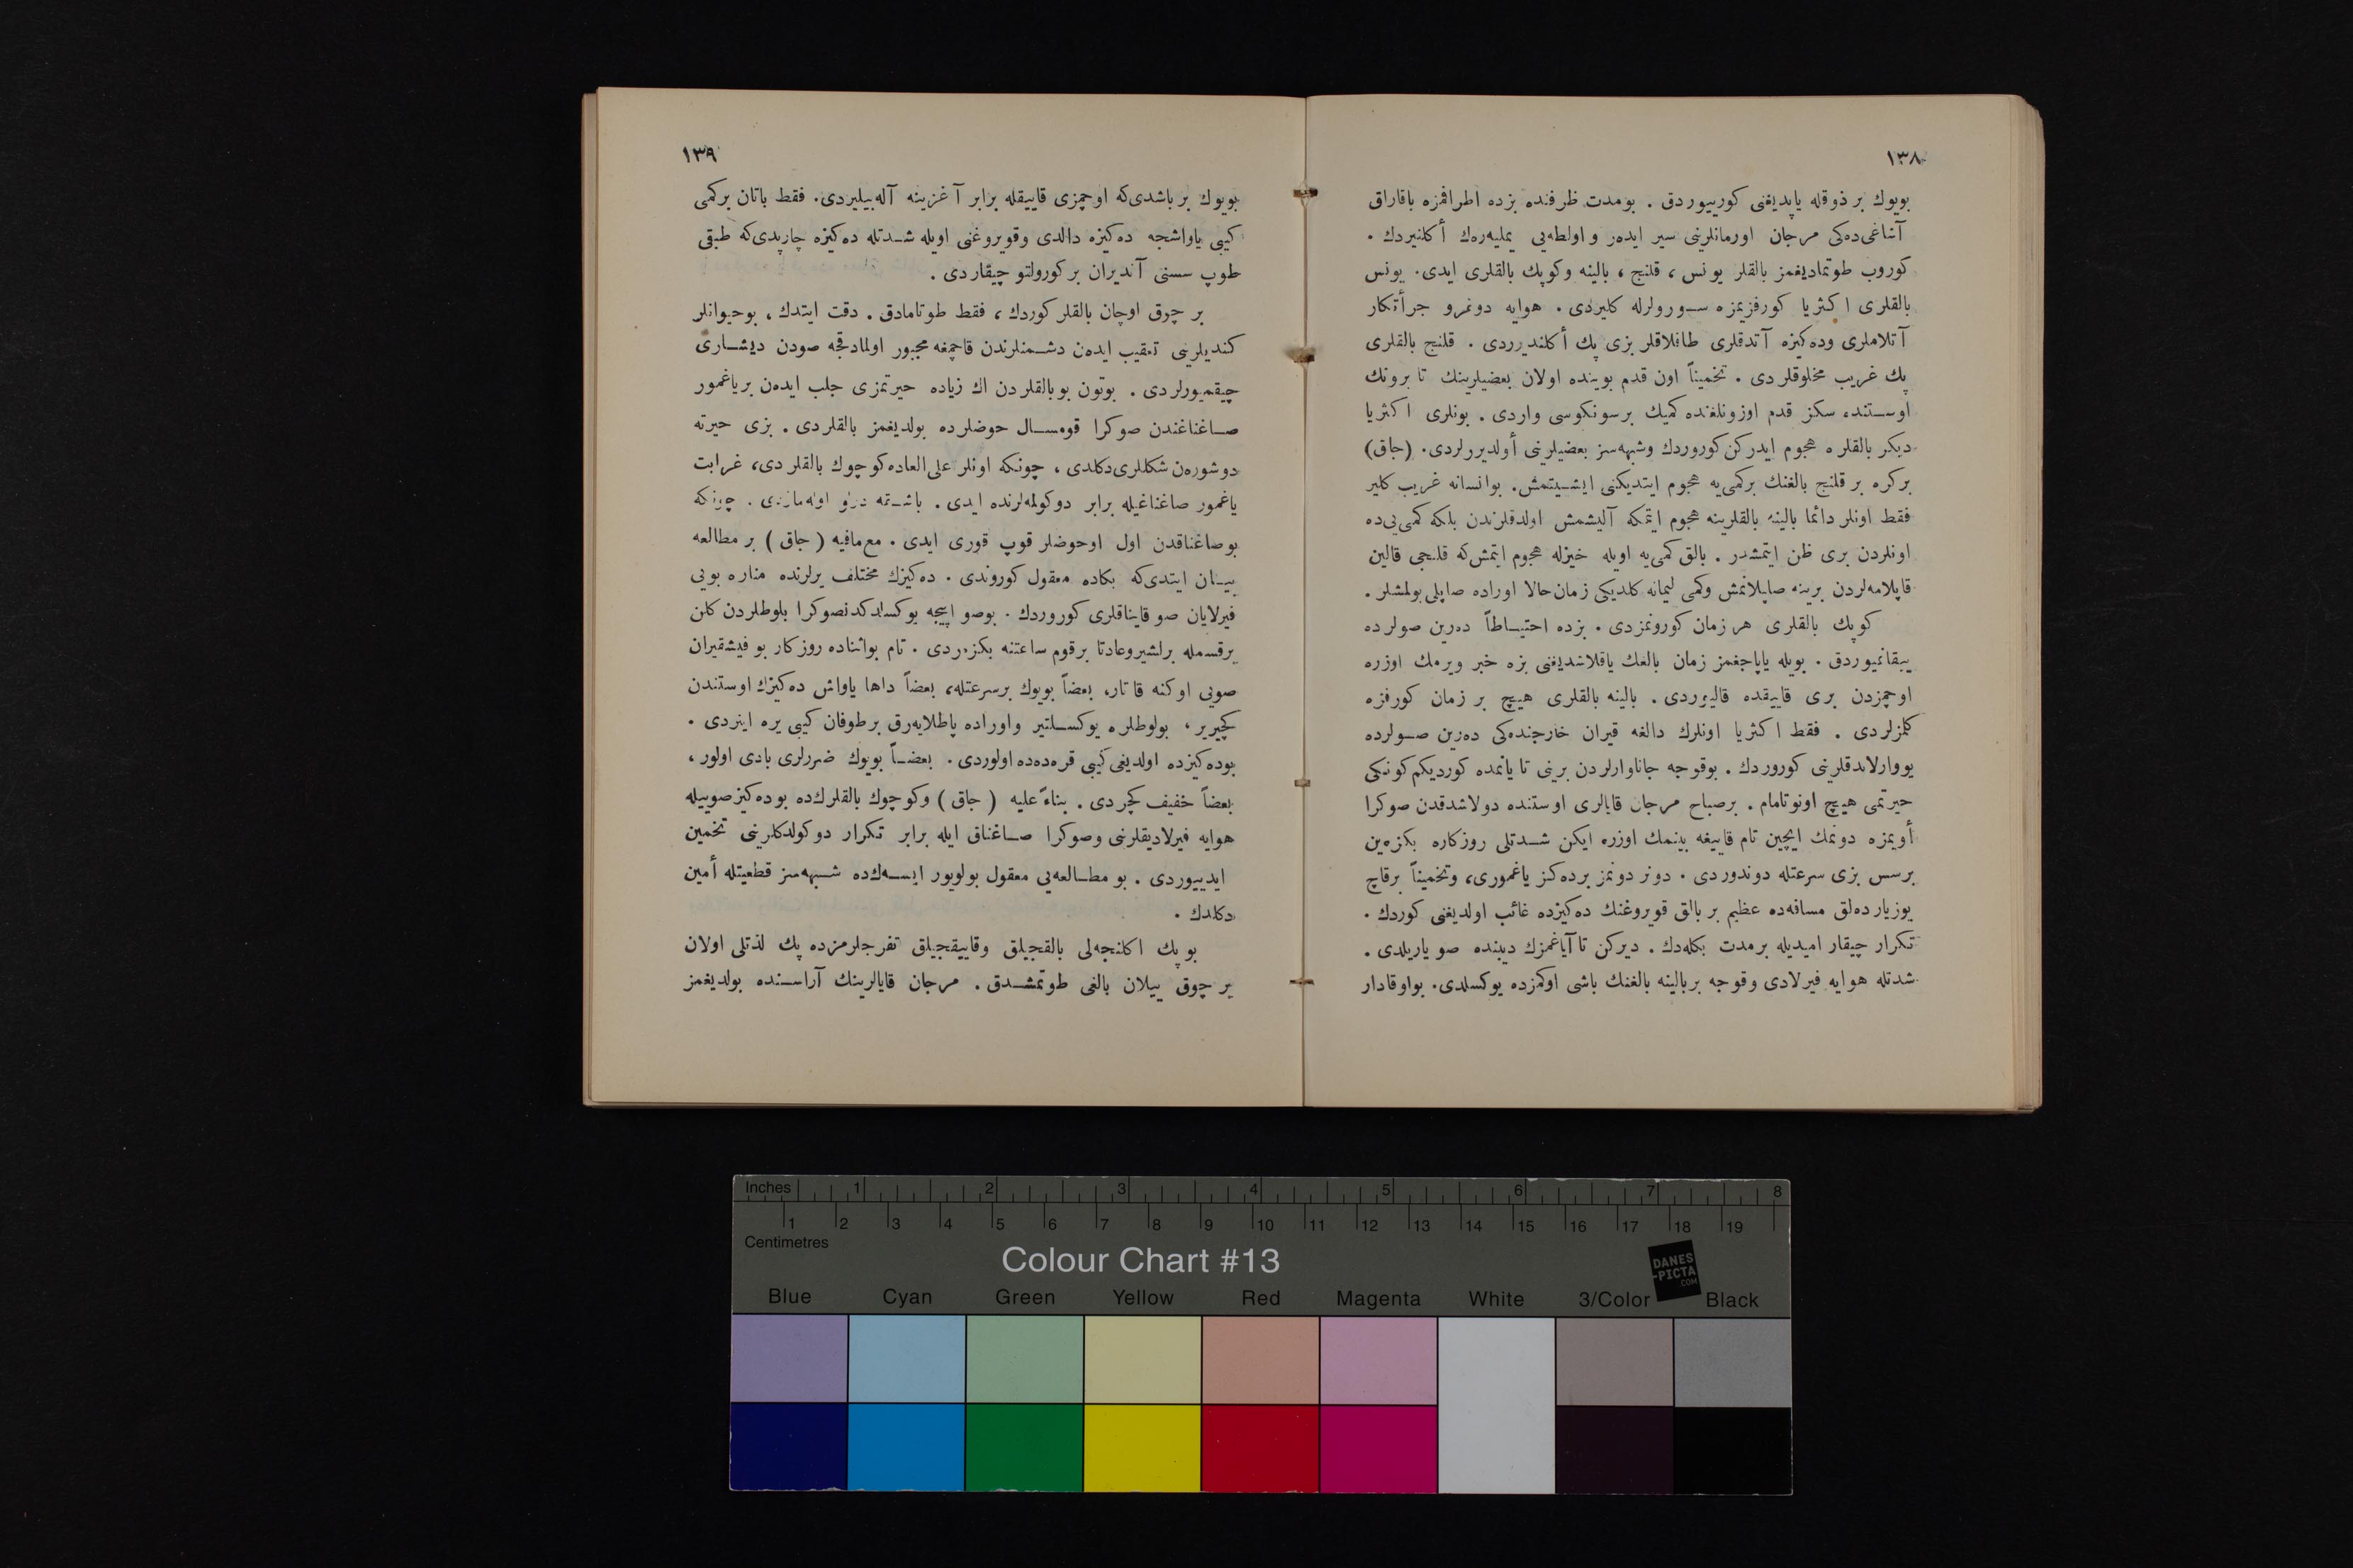 ١٣٨
بویوك بر ذوقله یاپدیغنی كورییوردق . بومدت ظرفنده بزده اطرافمزه باقاراق
آشاغی‌ده‌كی مرجان اورمانلرینی سیر ایده‌ر و اولطه‌یی یملیه‌ره‌ك أكلنیردك .
كوروب طوتمادیغمز بالقلر یونس ، قلنج ، بالینه وكوپك بالقلری ایدی . یونس
بالقلری اكثریا كورفزیمزه سورولرله كلیردی . هوایه دوغرو جرأتكار
آتلاملری وده‌كیزه آتدقلری طاقلاقلر بزی پك أكلندیرردی . قلنج بالقلری
پك غریب مخلوقلردی . تخمیناً اون قدم بوینده اولان بعضیلرینك تا برونك
اوستنده سكز قدم اوزونلغنده كمیك برسونكوسی واردی . بونلری اكثریا
دیكر بالقلره هجوم ایدركن كوروردك وشبهه‌سز بعضیلرینی أولدیررلردی . (جاق)
بركره بر قلنج بالغنك بركمی‌یه هجوم ایتدیكنی ایشیتمش . بوانسانه غریب كلیر
فقط اونلر دائما بالینه بالقلرینه هجوم ایتمكه آلیشمش اولدقلرندن بلكه كمی‌یی‌ده
اونلردن بری ظن ایتمشدر . بالق كمی‌یه اویله خیزله هجوم ایتمش‌كه قلنجی قالین
قاپلامه‌لردن برینه صاپلانمش وكمی لیمانه كلدیكی زمان حالا اوراده صاپلی بولمشلر .
كوپك بالقلری هر زمان كورونمزدی . بزده احتیاطاً ده‌رین صولرده
ییقانمیوردق . بویله یاپاجغمز زمان بالغك یاقلاشدیغنی بزه خبر ویرمك اوزره
اوچمزدن بری قاییقده قالیوردی . بالینه بالقلری هیچ بر زمان كورفزه
كلمزلردی . فقط اكثریا اونلرك دالغه قیران خارجنده‌كی ده‌رین صولرده
یووارلاندقلرینی كوروردك . بوقوجه جاناوارلردن برینی تا یانمده كوردیكم كونكی
حیرتمی هیچ اونوتامام . برصباح مرجان قایالری اوستنده دولاشدقدن صوكرا
أویمزه دونمك ایچین تام قاییغه بینمك اوزره ایكن شدتلی روزكاره بكزه‌ین
برسس بزی سرعتله دوندوردی . دونر دونمز برده‌كز یاغموری، وتخمیناً برقاچ
یوزیارده‌لق مسافه‌ده عظیم بر بالق قویروغنك ده‌كیزده غائب اولدیغنی كوردك .
تكرار چیقار امیدیله برمدت بكله‌دك . دیركن تا آیاغمزك دیبنده صو یاریلدی .
شدتله هوایه فیرلادی وقوجه بربالینه بالغنك باشی اوكمزده یوكسلدی . بواوقادار
١٣٩
بویوك بر باشدی‌كه اوچمزی قاییقله برابر آغزینه آله‌بیلیردی . فقط باتان بركمی
كیبی یاواشجه ده‌كیزه دالدی وقویروغنی اویله شدتله ده‌كیزه چارپدی‌كه طبقی
طوپ سسنی آندیران بركورولتو چیقاردی .
بر چوق اوچان بالقلر كوردك ، فقط طوتامادق . دقت ایتدك ، بوحیوانلر
كندیلرینی تعقیب ایده‌ن دشمنلرندن قاچمغه مجبور اولمادقجه صودن دیشاری
چیقمیورلردی . بوتون بوبالقلردن اك زیاده حیرتمزی جلب ایده‌ن بریاغمور
صاغناغندن صوكرا قومسال حوضلرده بولدیغمز بالقلردی . بزی حیرته
دوشوره‌ن شكللری دكلدی ، چونكه اونلر علی‌العاده كوچوك بالقلردی، غرابت
یاغمور صاغناغیله برابر دوكولمه‌لرنده ایدی . باشقه درلو اوله‌مازدی . چونكه
بوصاغناقدن اول اوحوضلر قوپ قوری ایدی . مع‌مافیه ( جاق ) بر مطالعه
بیان ایتدی‌كه بكاده معقول كوروندی . ده‌كیزك مختلف یرلرنده مناره بویی
فیرلایان صو قایناقلری كوروردك . بوصو اییجه یوكسلدكدنصوكرا بلوطلردن كلن
برقسمله برلشیروعادتا برقوم ساعتنه بكزه‌ردی . تام بواثناده روزكار بو فیشقیران
صویی اوكنه قاتار، بعضاً بویوك برسرعتله، بعضاً داها یاواش ده‌كیزك اوستندن
كچیریر ، بولوطلره یوكسلتیر واوراده پاطلایه‌رق برطوفان كیبی یره اینردی .
بوده‌كیزده اولدیغی كیبی قره‌ده‌ده اولوردی . بعضاً بویوك ضررلری بادی اولور ،
بعضاً خفیف كچردی . بناءً علیه ( جاق ) وكوچوك بالقلرك‌ده بوده‌كیزصوییله
هوایه فیرلادیقلرینی وصوكرا صاغناق ایله برابر تكرار دوكولدكلرینی تخمین
ایدییوردی . بو مطالعه‌یی معقول بولویور ایسه‌ك‌ده شبهه‌سز قطعیتله أمین
دكلدك .
بو پك اكلنجه‌لی بالقجیلق وقاییقجیلق تفرجلرمزده پك لذتلی اولان
بر چوق ییلان بالغی طوتمشدق . مرجان قایالرینك آراسنده بولدیغمز
Inches 1 2 3 4 5 6 7 8
1 2 3 4 5 6 7 8 9 10 11 12 13 14 15 16 17 18 19
Centimetres
Colour Chart #13
DANES
-PICTA
.COM
Blue Cyan Green Yellow Red Magenta White 3/Color Black